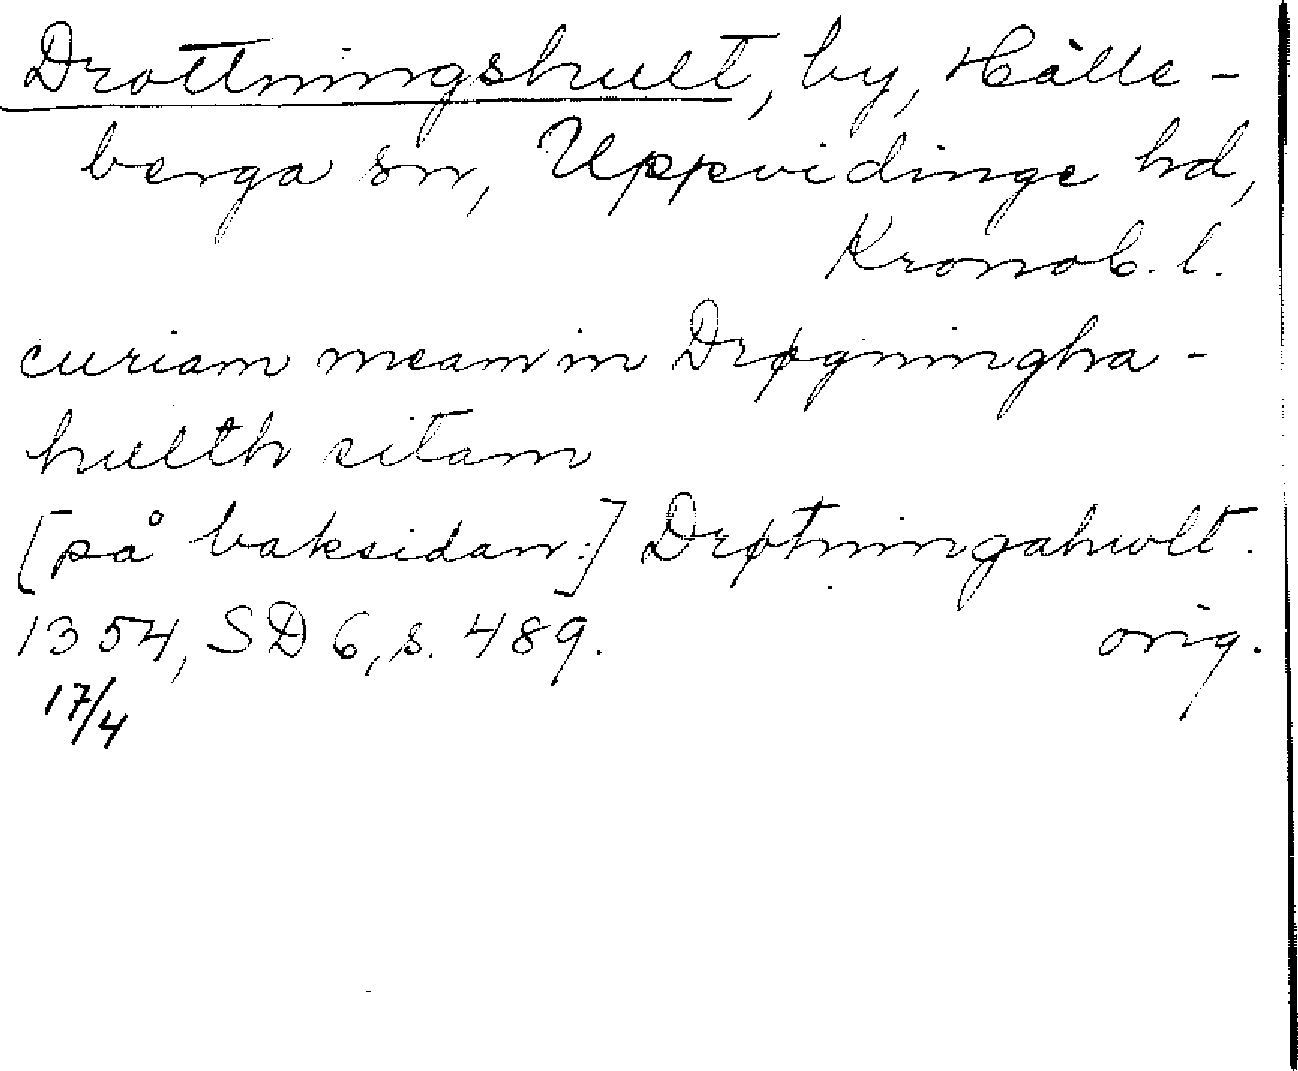 Drottningshult, by, Hälle-
berga sn, Uppvidinge hd,
Kronob. l.
curiam meam in Drøgningha-
hulth sitam
[på baksidan:] Drøtningahwlt.
1354, SD 6, s. 489. orig.
17/4